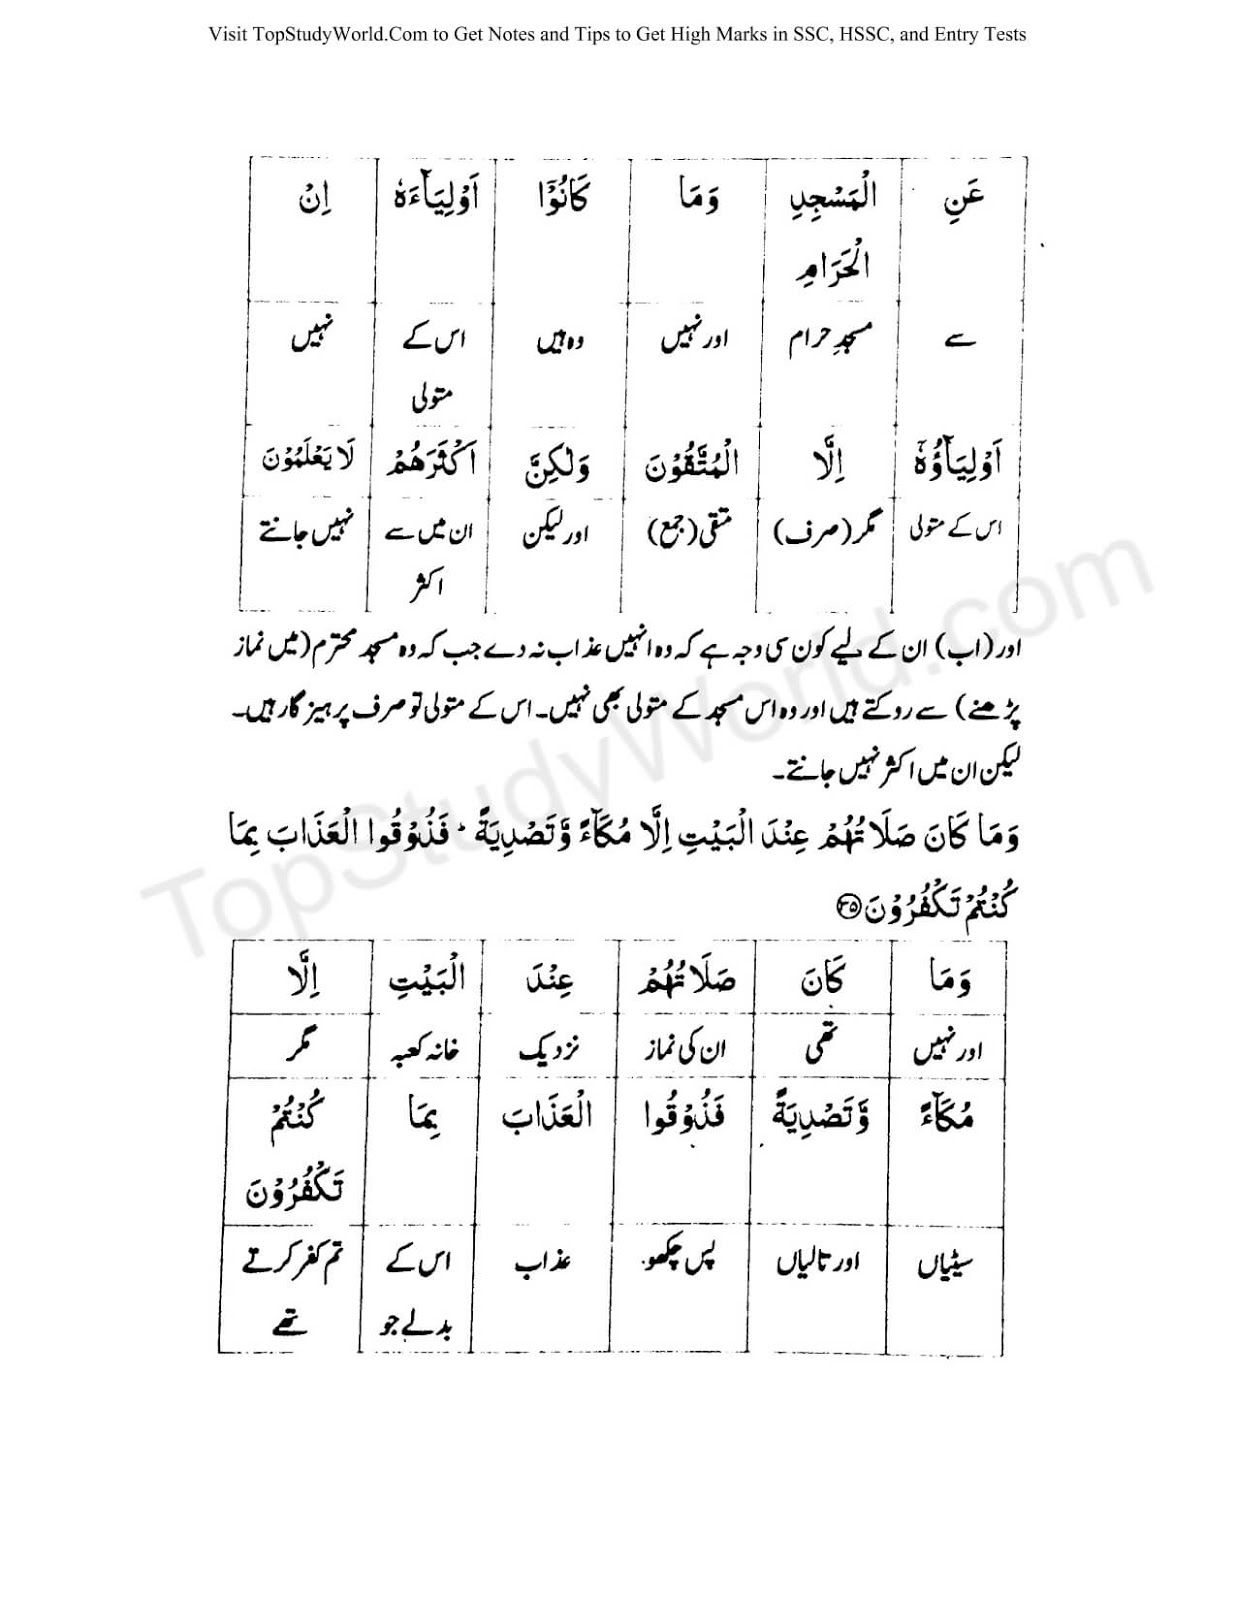 Visit TopStudyWorld.Com to Get Notes and Tips to Get High Marks in SSC, HSSC, and Entry Tests
عَنِ الْمَسْجِدِ وَمَا كَانُوْٓا اَوْلِيَآءَهٗ اِنْ
الْحَرَامِ
سے مسجدِ حرام اور نہیں وہ ہیں اس کے نہیں
متولی
اَوْلِيَآؤُهٗٓ اِلَّا الْمُتَّقُوْنَ وَلٰكِنَّ اَكْثَرَهُمْ لَا يَعْلَمُوْنَ
اس کے متولی مگر (صرف) متقی (جمع) اور لیکن ان میں سے نہیں جانتے
اکثر
اور (اب) ان کے لیے کون سی وجہ ہے کہ وہ انہیں عذاب نہ دے جب کہ وہ مسجد محترم (میں نماز
پڑھنے) سے روکتے ہیں اور وہ اس مسجد کے متولی بھی نہیں۔ اس کے متولی تو صرف پرہیز گار ہیں۔
لیکن ان میں اکثر نہیں جانتے۔
وَمَا كَانَ صَلَاتُهُمْ عِنْدَ الْبَيْتِ اِلَّا مُكَآءً وَّتَصْدِيَةً ؕ فَذُوْقُوا الْعَذَابَ بِمَا
كُنْتُمْ تَكْفُرُوْنَ ۝۳۵
وَمَا كَانَ صَلَاتُهُمْ عِنْدَ الْبَيْتِ اِلَّا
اور نہیں تھی ان کی نماز نزدیک خانہ کعبہ مگر
مُكَآءً وَّتَصْدِيَةً فَذُوْقُوا الْعَذَابَ بِمَا كُنْتُمْ
تَكْفُرُوْنَ
سیٹیاں اور تالیاں پس چکھو عذاب اس کے تم کفر کرتے
بدلے جو تھے
TopStudyWorld.com